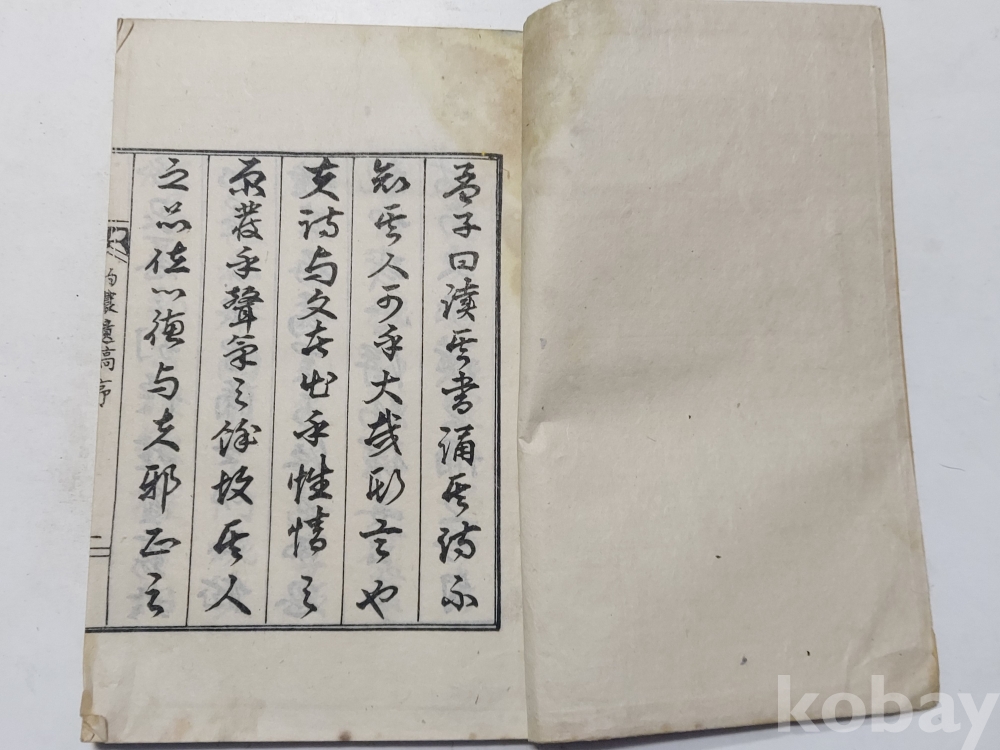 孟子曰讀其書誦其詩不
知其人可乎大哉斯言也
夫詩与文者出乎性情之
原發乎聲氣之餘故其人
之品位心德与夫邪正
遺稿序
二
kobay